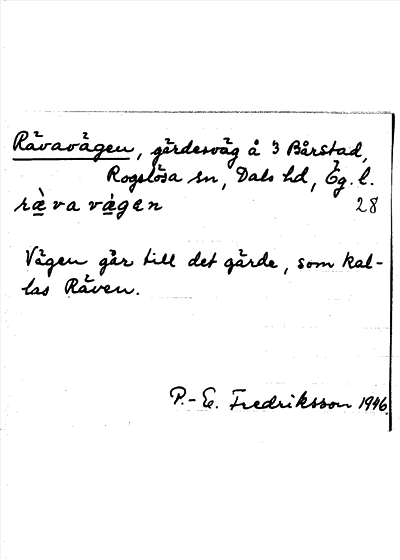 Rävavägen, gärdesväg å 3 Bårstad,
Rogslösa sn, Dals hd, Ög. l.
ræ̀va vǽgen 28
Vägen går till det gärde, som kal-
las Räven.
P.-E. Fredriksson 1946.